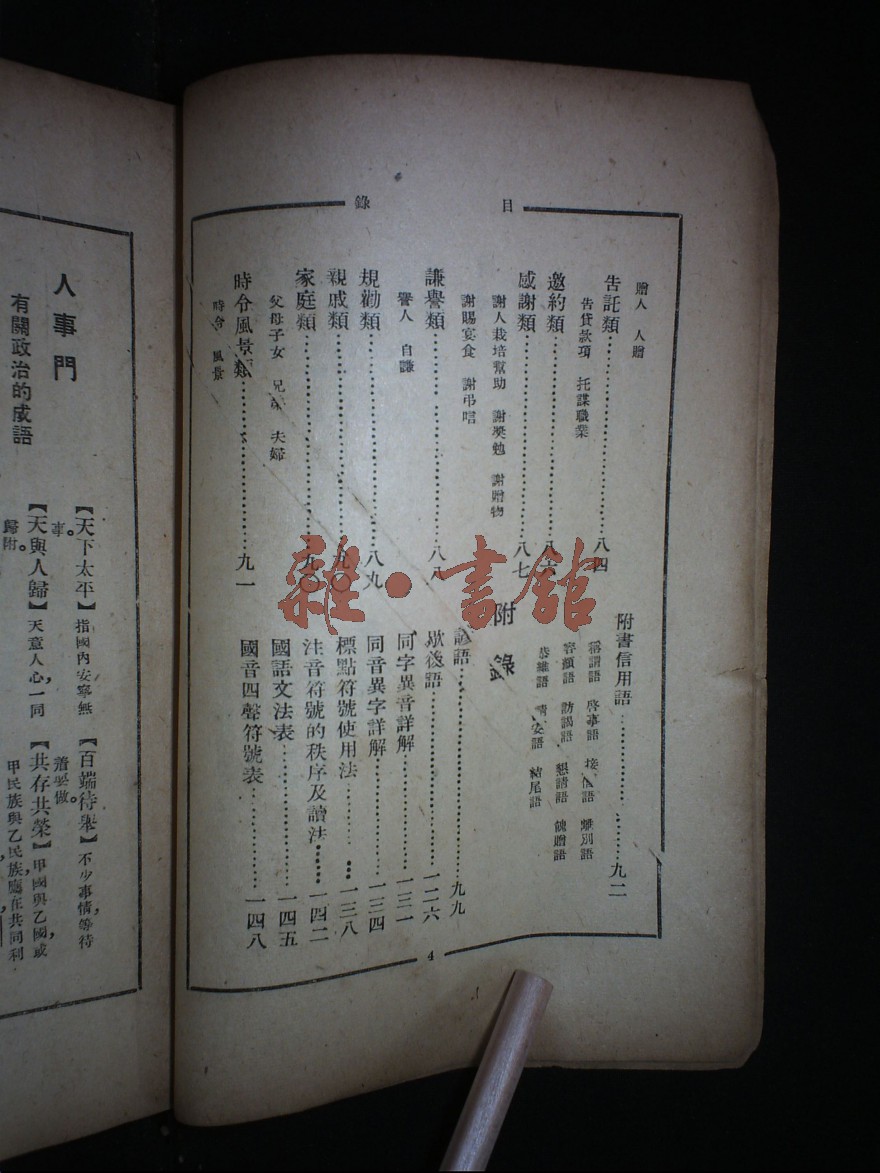 目錄
贈人 人贈
告託類……八四
告貸款項 托謀職業
邀約類……八六
感謝類……八七
謝人栽培幫助 謝奬勉 謝贈物
謝賜宴食 謝弔唁
謙譽類……八八
譽人 自謙
規勸類……八九
親戚類……九〇
家庭類……九〇
父母子女 兄弟 夫婦
時令風景類……九一
時令 風景
附書信用語……九二
稱謂語 啓事語 接信語 離別語
寄頌語 訪謁語 懇請語 餽贈語
恭維語 請安語 結尾語
附錄
諺語……九九
歇後語……一二六
同字異音詳解……一三一
同音異字詳解……一三四
標點符號使用法……一三八
注音符號的秩序及讀法……一四二
國語文法表……一四五
國音四聲符號表……一四八
4
人事門
有關政治的成語
【天下太平】指國內安寧無
事。
【天與人歸】天意人心,一同
歸附。
【百端待舉】不少事情等待
着要做。
【共存共榮】甲國與乙國或
甲民族與乙民族應在共同利
雜·書館